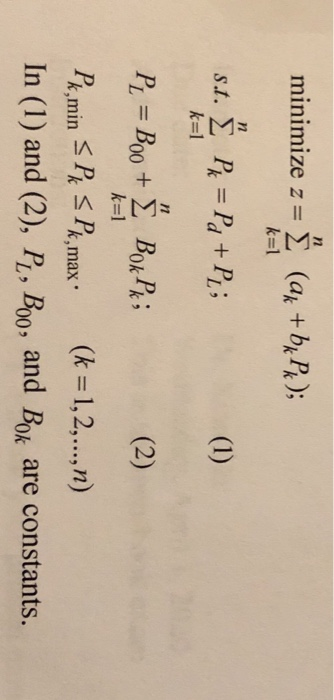 minimize z = ∑_{k=1}^{n} (a_k + b_k P_k);
s.t. ∑_{k=1}^{n} P_k = P_d + P_L; (1)
P_L = B_00 + ∑_{k=1}^{n} B_0k P_k; (2)
P_k,min ≤ P_k ≤ P_k,max. (k = 1, 2, ..., n)
In (1) and (2), P_L, B_00, and B_0k are constants.